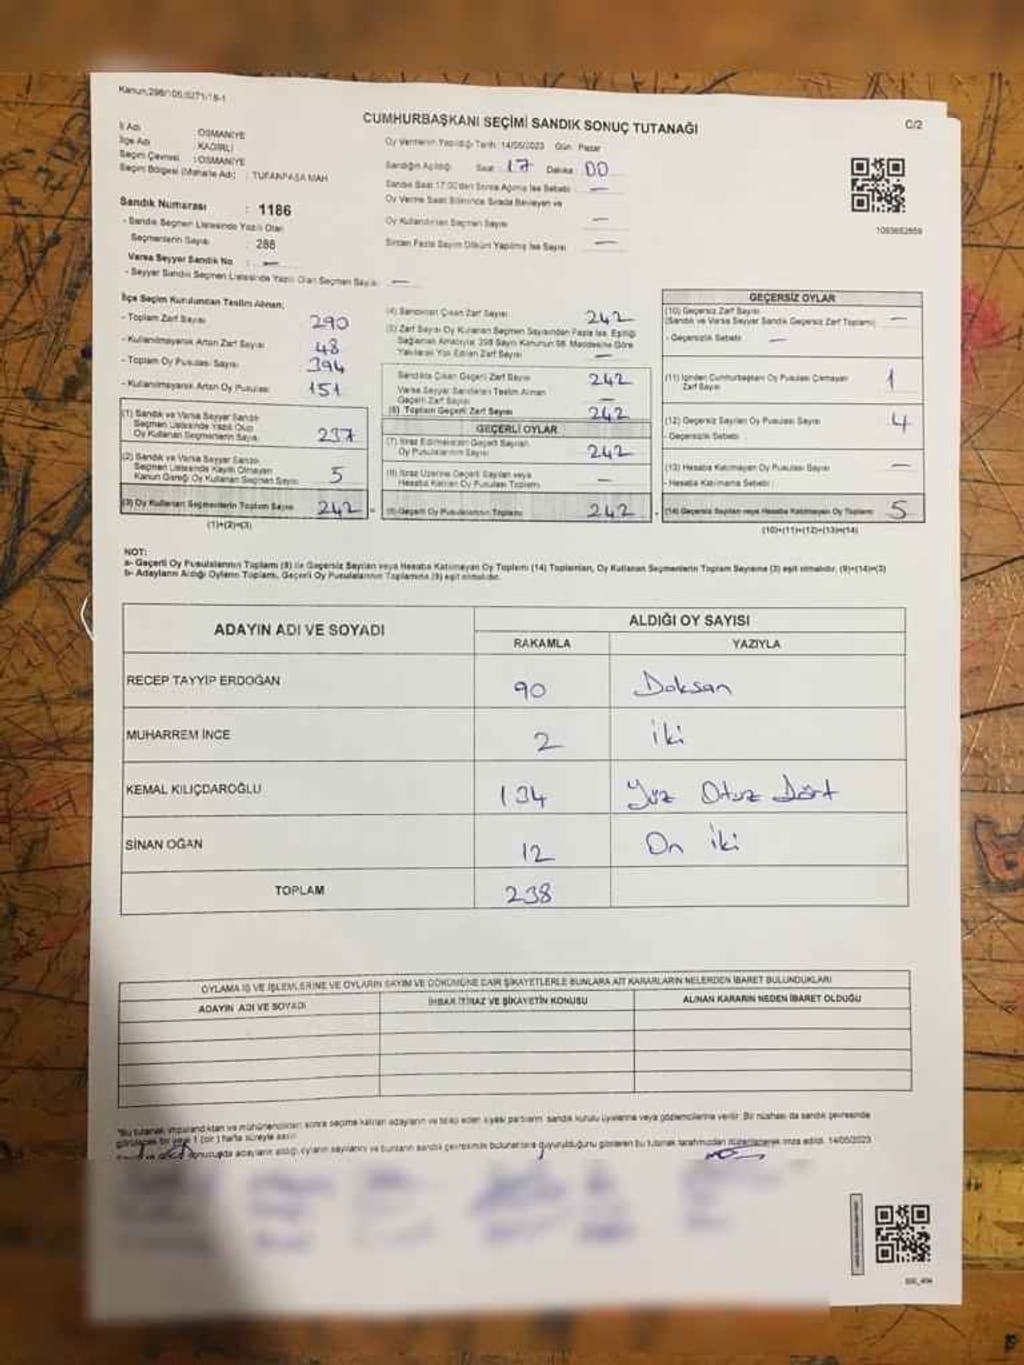 Kanun:298/105;6271/18-1
C/2
CUMHURBAŞKANI SEÇİMİ SANDIK SONUÇ TUTANAĞI
İl Adı : OSMANİYE
İlçe Adı : KADİRLİ
Seçim Çevresi : OSMANİYE
Seçim Bölgesi (Mahalle Adı) : TUFANPAŞA MAH
Sandık Numarası : 1186
- Sandık Seçmen Listesinde Yazılı Olan
Seçmenlerin Sayısı : 288
Varsa Seyyar Sandık No : —
- Seyyar Sandık Seçmen Listesinde Yazılı Olan Seçmen Sayısı: —
Oy Vermenin Yapıldığı Tarih: 14/05/2023 Gün: Pazar
Sandığın Açıldığı Saat : 17 Dakika : 00
Sandık Saat 17:00'den Sonra Açılmış İse Sebebi : —
Oy Verme Saati Bitiminde Sırada Bekleyen ve
Oy Kullandırılan Seçmen Sayısı —
Birden Fazla Sayım Döküm Yapılmış İse Sayısı —
1093652859
İlçe Seçim Kurulundan Teslim Alınan;
- Toplam Zarf Sayısı 290
- Kullanılmayarak Artan Zarf Sayısı 48
- Toplam Oy Pusulası Sayısı 394
- Kullanılmayarak Artan Oy Pusulası 151
(1) Sandık ve Varsa Seyyar Sandık
Seçmen Listesinde Yazılı Olup
Oy Kullanan Seçmenlerin Sayısı 237
(2) Sandık ve Varsa Seyyar Sandık
Seçmen Listesinde Kayıtlı Olmayan
Kanun Gereği Oy Kullanan Seçmen Sayısı 5
(3) Oy Kullanan Seçmenlerin Toplam Sayısı 242
(1)+(2)=(3)
(4) Sandıktan Çıkan Zarf Sayısı 242
(5) Zarf Sayısı Oy Kullanan Seçmen Sayısından Fazla İse, Eşitliği
Sağlamak Amacıyla, 298 Sayılı Kanunun 98. Maddesine Göre
Yakılarak Yok Edilen Zarf Sayısı —
Sandıkta Çıkan Geçerli Zarf Sayısı 242
Varsa Seyyar Sandıktan Teslim Alınan
Geçerli Zarf Sayısı —
(6) Toplam Geçerli Zarf Sayısı 242
GEÇERLİ OYLAR
(7) İtiraz Edilmeksizin Geçerli Sayılan
Oy Pusulalarının Sayısı 242
(8) İtiraz Üzerine Geçerli Sayılan veya
Hesaba Katılan Oy Pusulası Toplamı —
(9) Geçerli Oy Pusulalarının Toplamı 242
GEÇERSİZ OYLAR
(10) Geçersiz Zarf Sayısı
(Sandık ve Varsa Seyyar Sandık Geçersiz Zarf Toplamı) —
- Geçersizlik Sebebi : —
(11) İçinden Cumhurbaşkanı Oy Pusulası Çıkmayan
Zarf Sayısı 1
(12) Geçersiz Sayılan Oy Pusulası Sayısı 4
- Geçersizlik Sebebi :
(13) Hesaba Katılmayan Oy Pusulası Sayısı —
- Hesaba Katılmama Sebebi :
(14) Geçersiz Sayılan veya Hesaba Katılmayan Oy Toplamı 5
(10)+(11)+(12)+(13)=(14)
NOT:
a- Geçerli Oy Pusulalarının Toplamı (9) ile Geçersiz Sayılan veya Hesaba Katılmayan Oy Toplamı (14) Toplamları, Oy Kullanan Seçmenlerin Toplam Sayısına (3) eşit olmalıdır. (9)+(14)=(3)
b- Adayların Aldığı Oyların Toplamı, Geçerli Oy Pusulalarının Toplamına (9) eşit olmalıdır.
ADAYIN ADI VE SOYADI
ALDIĞI OY SAYISI
RAKAMLA YAZIYLA
RECEP TAYYİP ERDOĞAN 90 Doksan
MUHARREM İNCE 2 iki
KEMAL KILIÇDAROĞLU 134 Yüz Otuz Dört
SİNAN OĞAN 12 On iki
TOPLAM 238
OYLAMA İŞ VE İŞLEMLERİNE VE OYLARIN SAYIM VE DÖKÜMÜNE DAİR ŞİKAYETLERLE BUNLARA AİT KARARLARIN NELERDEN İBARET BULUNDUKLARI
ADAYIN ADI VE SOYADI İHBAR İTİRAZ VE ŞİKAYETİN KONUSU ALINAN KARARIN NEDEN İBARET OLDUĞU
*Bu tutanak imzalandıktan ve mühürlendikten sonra seçime katılan adayların ve talep eden siyasi partilerin sandık kurulu üyelerine veya gözlemcilerine verilir. Bir nüshası da sandık çevresinde
görülecek bir yere 1 (bir) hafta süreyle asılır.
sonucunda adayların aldığı oyların sayılarını ve bunların sandık çevresinde bulunanlara duyurulduğunu gösteren bu tutanak tarafımızdan düzenlenerek imza edildi. 14/05/2023